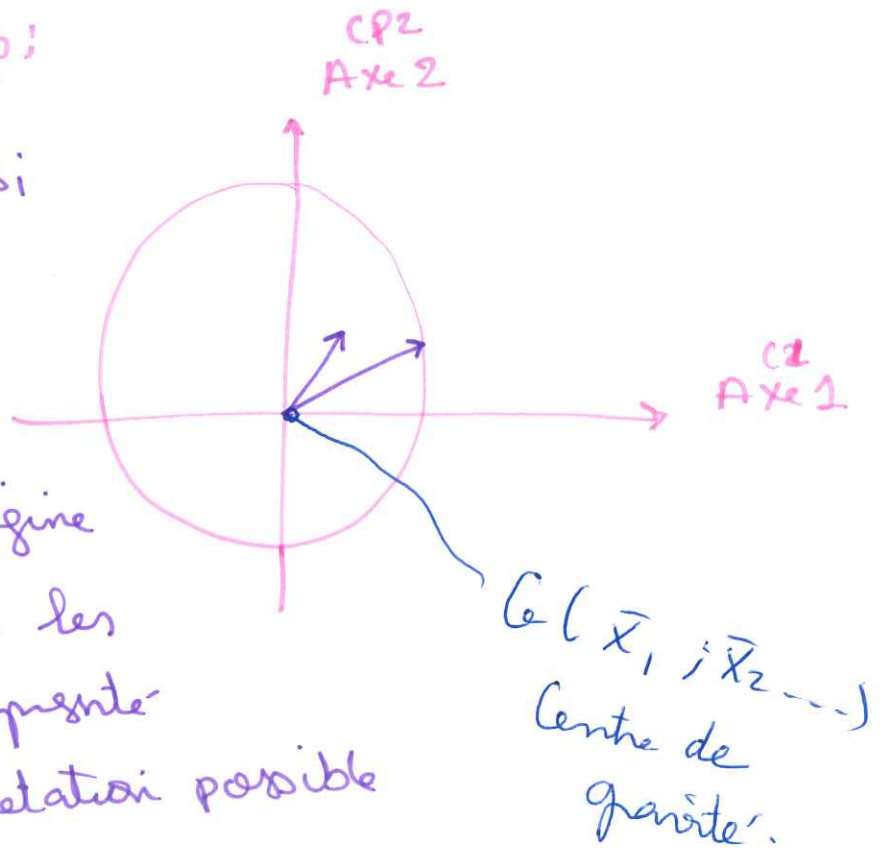 CP2
Axe 2
si
C1
Axe 1
gine
les
etation possible
G ( X̄₁ ; X̄₂ ---)
Centre de
gravité.